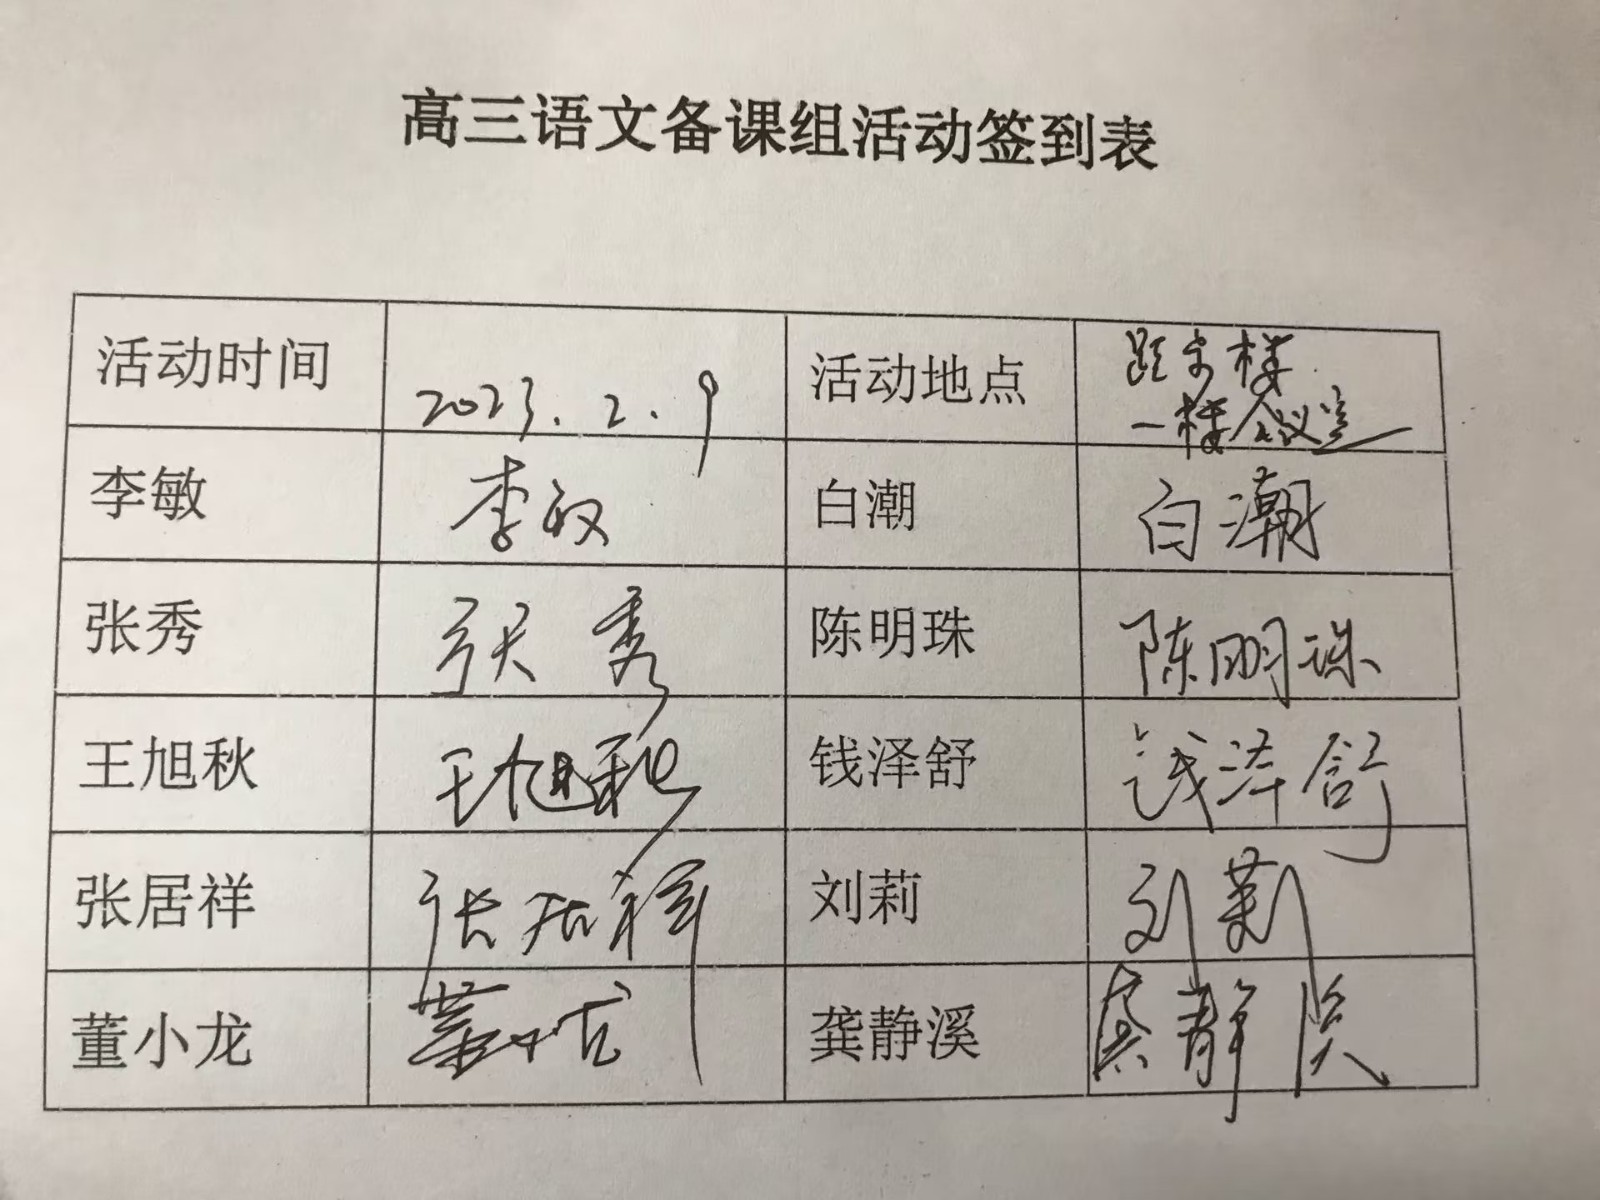 高三语文备课组活动签到表
活动时间 2023.2.9 活动地点 跬步楼
一楼会议室
李敏 李敏 白潮 白潮
张秀 张秀 陈明珠 陈明珠
王旭秋 王旭秋 钱泽舒 钱泽舒
张居祥 张居祥 刘莉 刘莉
董小龙 董小龙 龚静溪 龚静溪